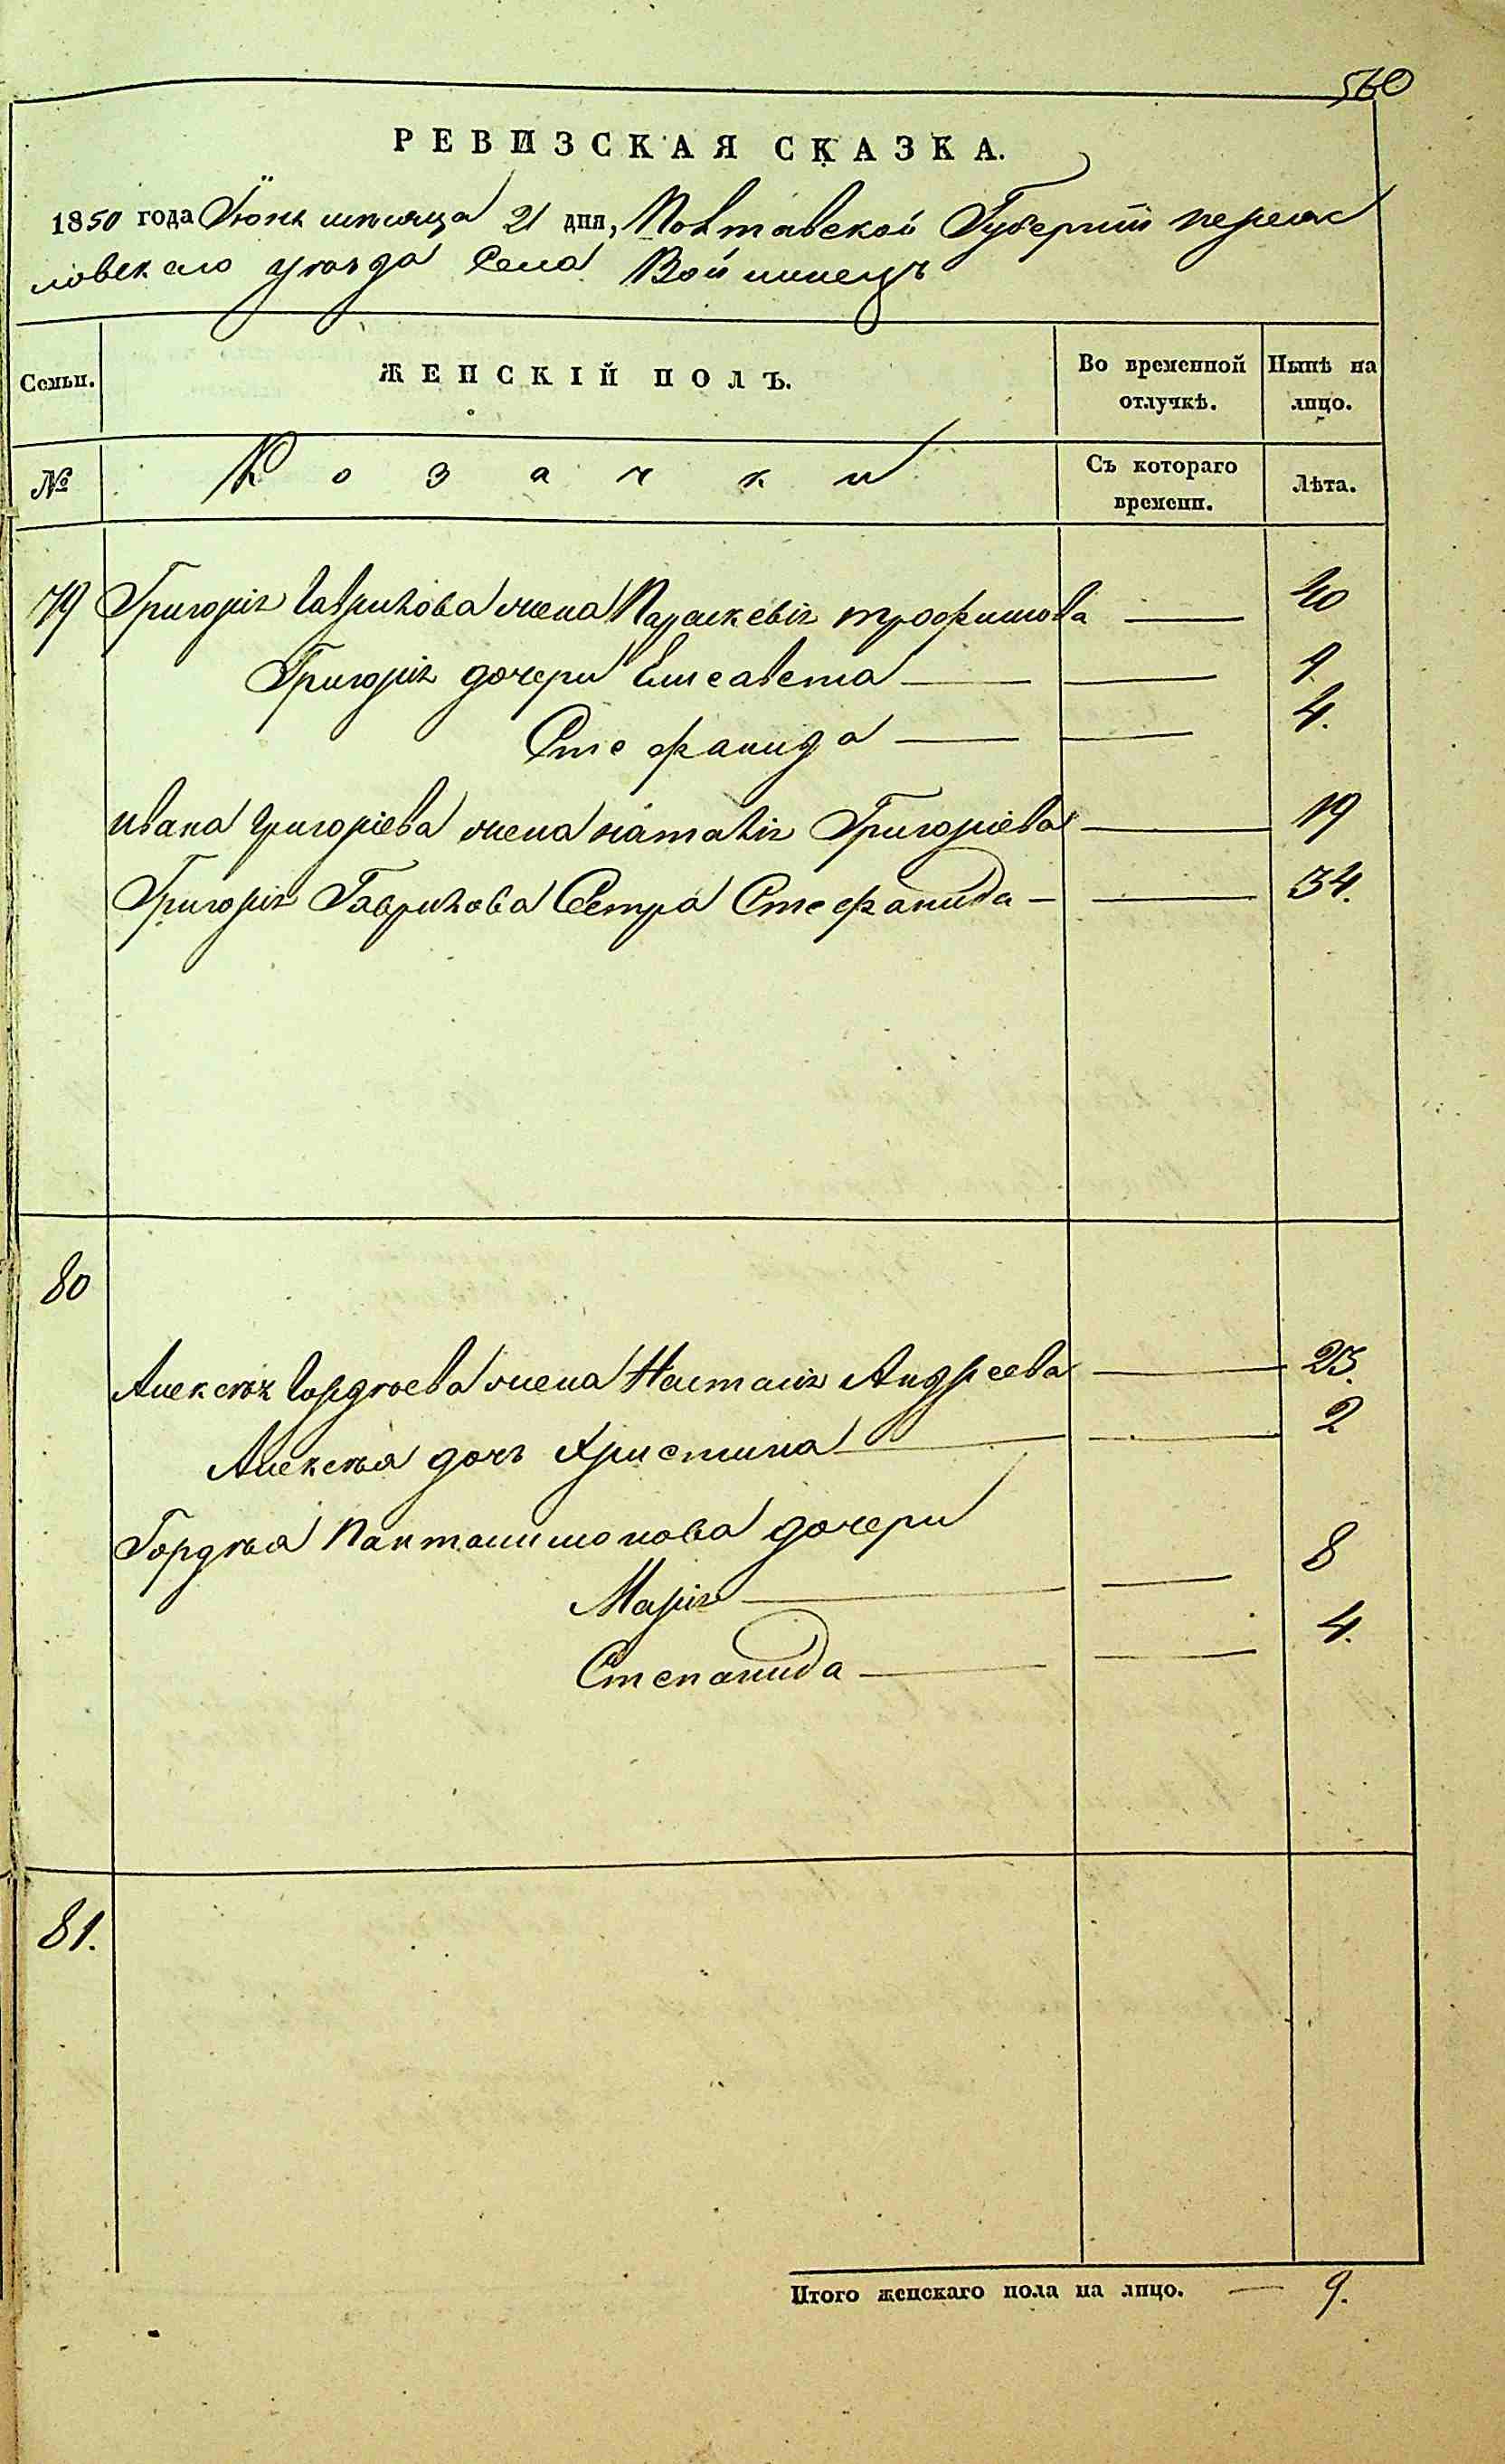 560
РЕВИЗСКАЯ СКАЗКА.
1850 года Іюня мѣсяца 21 дня, Полтавской Губерніи переяс
ловскаго уѣзда Села Войтинецъ
Семьи. ЖЕНСКІЙ ПОЛЪ. Во временной отлучкѣ. Нынѣ на лицо.
№ Козачки Съ котораго времени. Лѣта.
79 Григорія Гаврилова жена Параскевія трофимова — 40
Григорія дочери Елисавета — — 9
Стефанида — — 4.
ивана григоріева жена наталія Григоріева — 19
Григорія Гаврилова Сестра Стефанида — — 34.
80
Алексѣя Гордѣева жена Настасія Андреева — 23.
Алексѣя дочь Христина — — 2
Гордѣя Панталимонова дочери
Марія — — 8
Степанида — — 4.
81.
Итого женскаго пола на лицо. — 9.